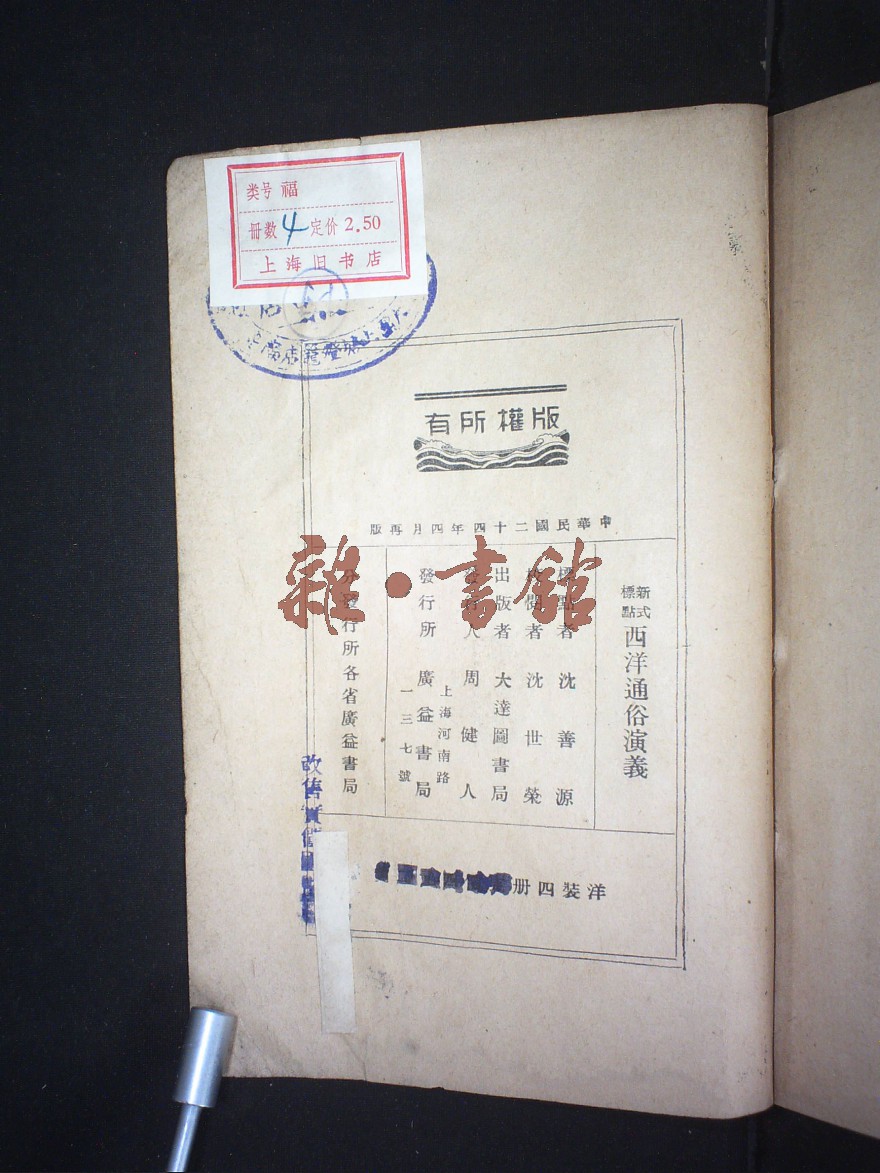 类号 福
册数 4 定价 2.50
上海旧书店
版權所有
中華民國二十四年四月再版
新式標點 西洋通俗演義
標點者 沈善源
校閱者 沈世榮
出版者 大達圖書局
發行人 周健人
發行所 廣益書局
上海河南路
一三七號
分發行所各省廣益書局
洋裝四册
改售實價
雜·書館